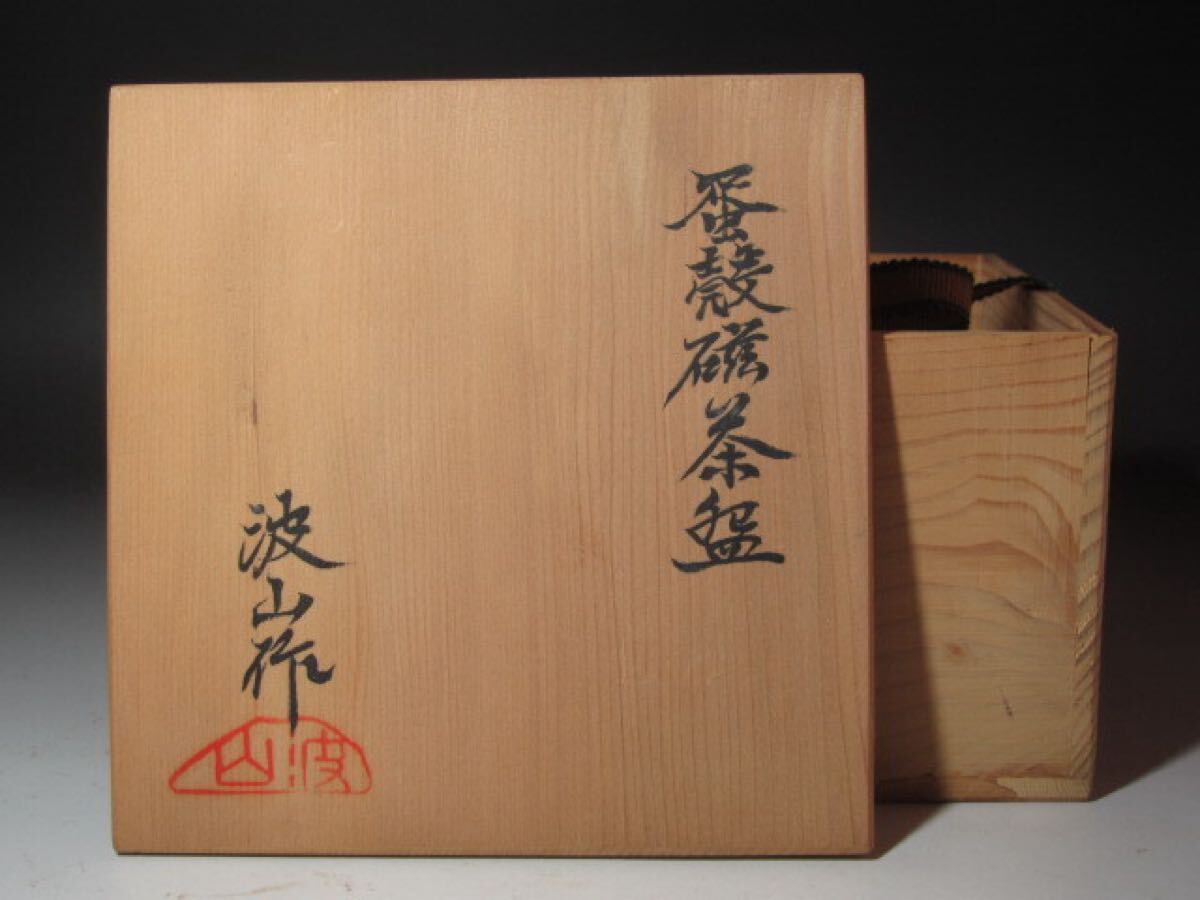 蛋殻磁茶盌
波山作
波山